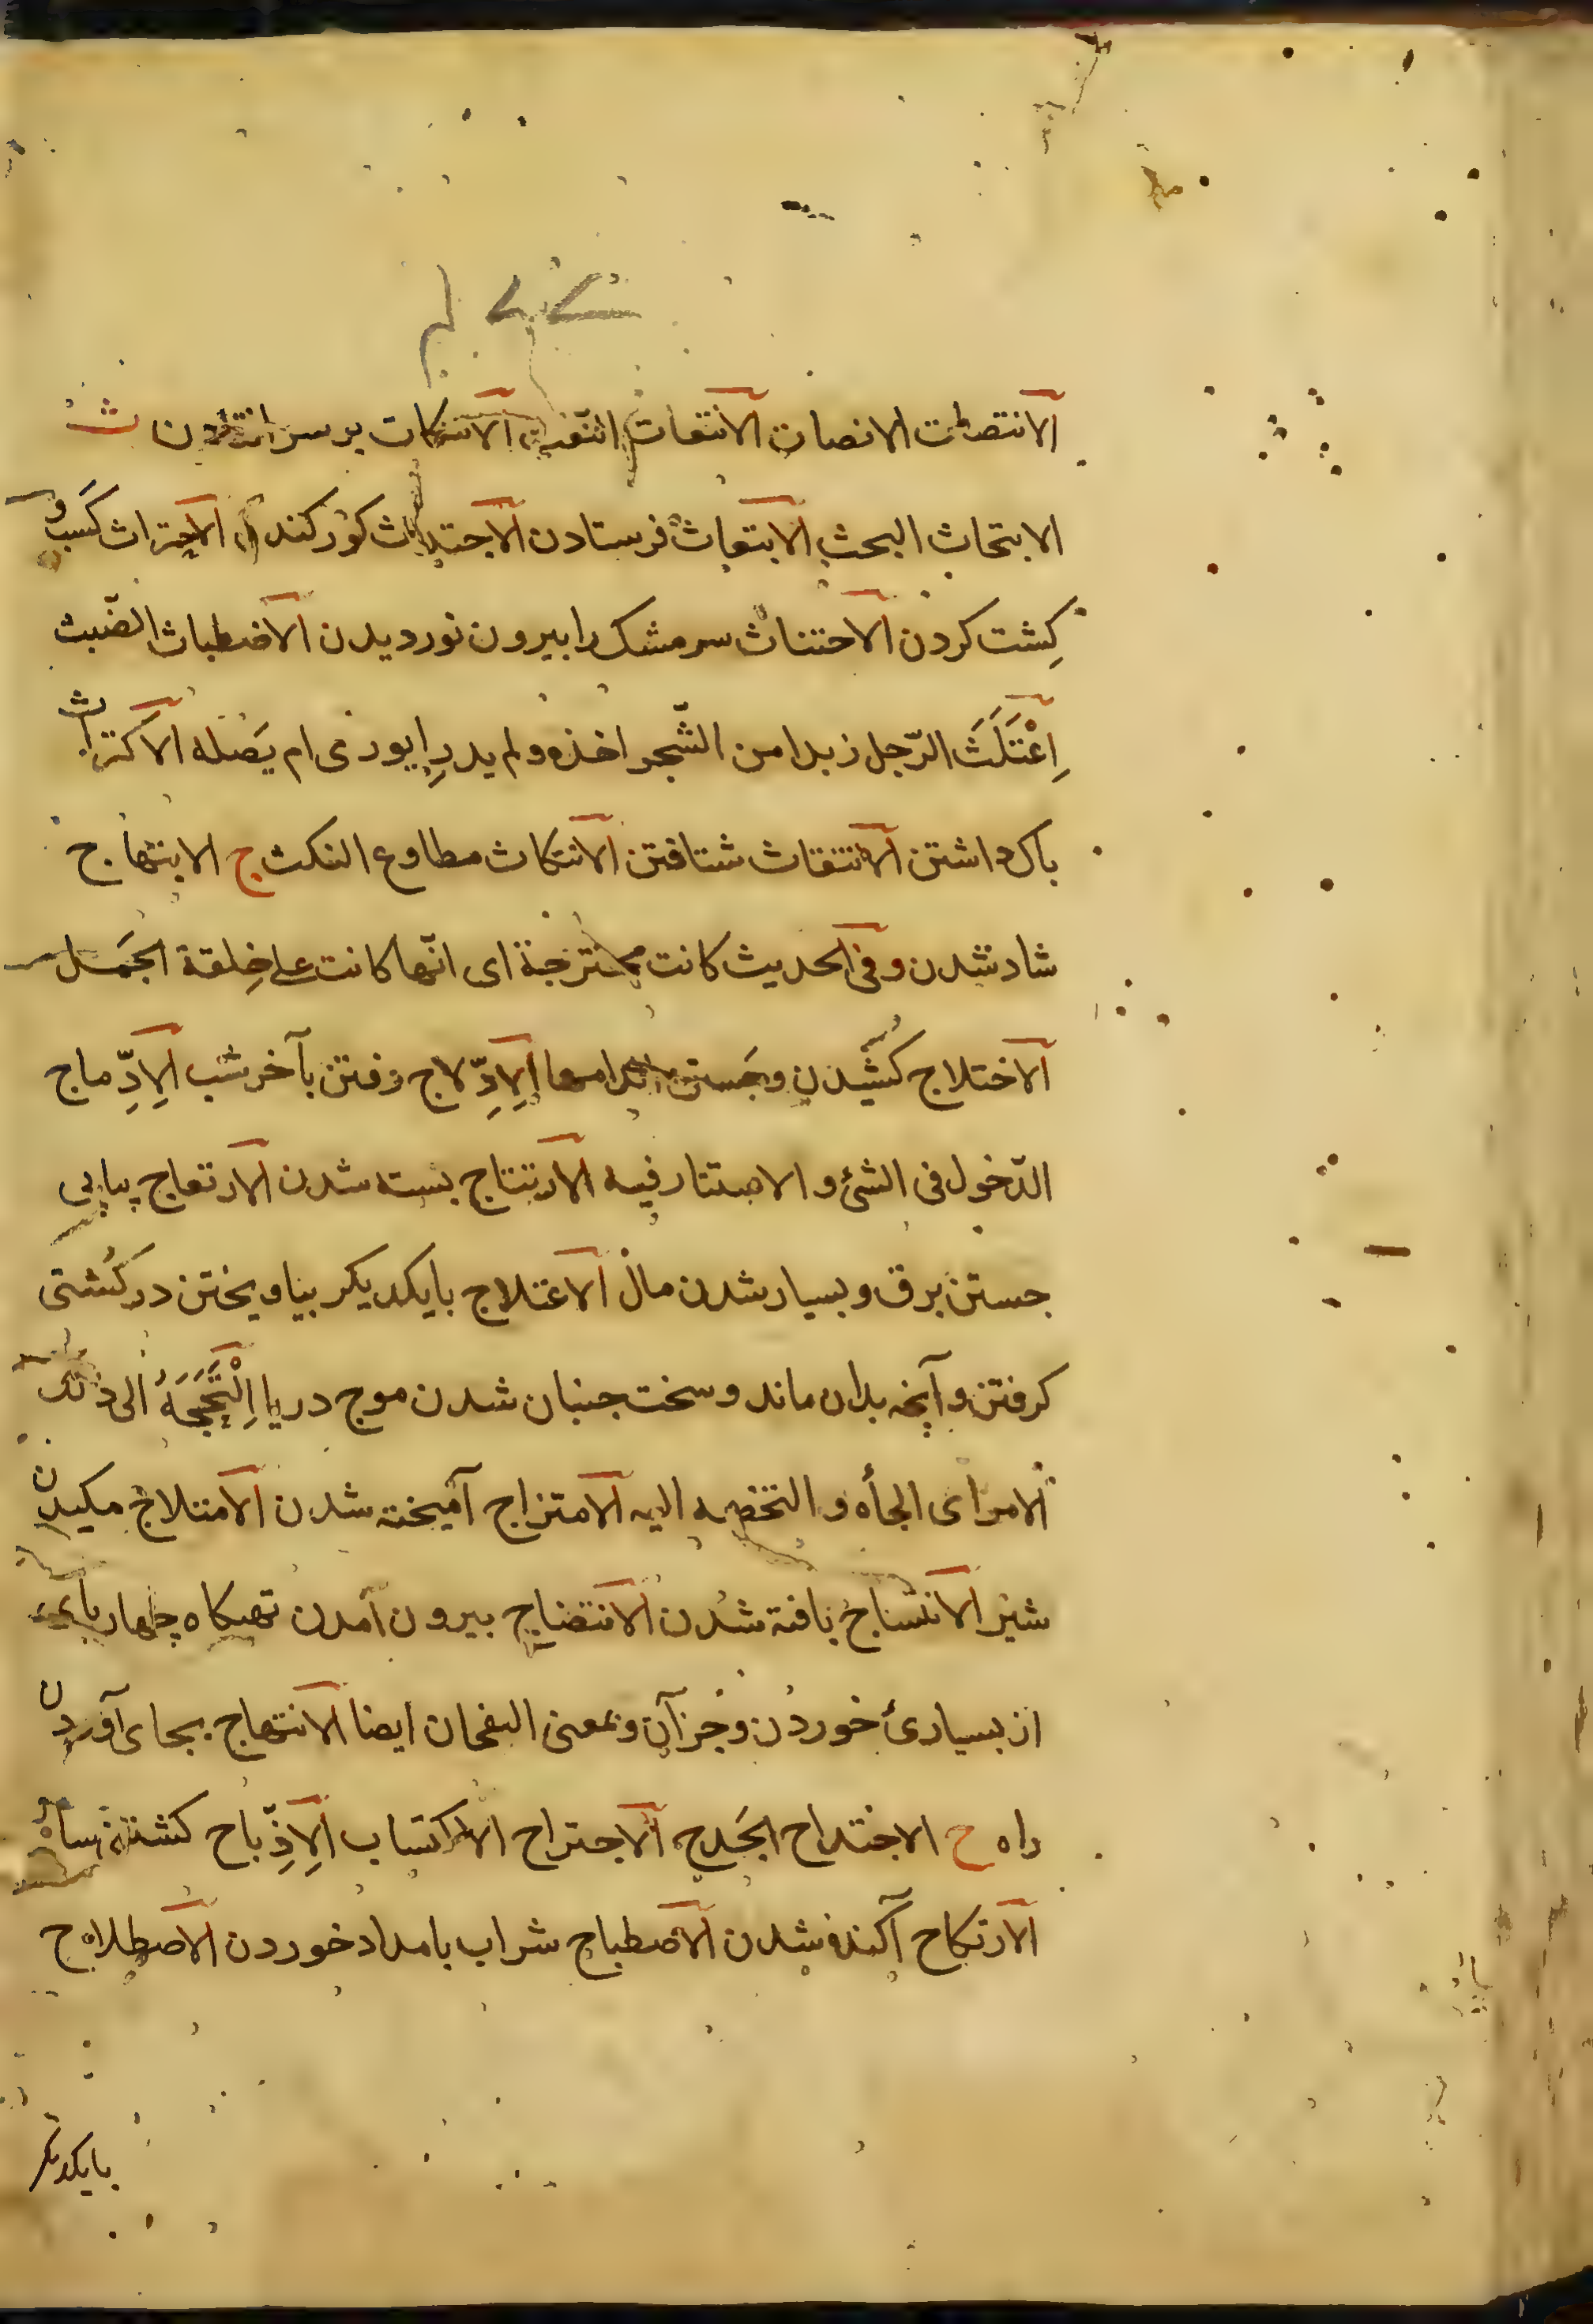 الانتصات الانصات الانتعات النعت الانتكات بر سر افتادن ث
الابتحاث البحث الابتعاث فرستادن الاجتداث كور كندن الاحتراث كسب و
كِشت كردن الاختناث سر مشک را بيرون نورديدن الاضطباث الضبث
اِعْتَلَثَ الرّجل زبدا من الشّجر اخذه و لم يدرِ ايورى ام يَصْلد الاكتراث
باک داشتن الانتقاث شتافتن الانتكاث مطاوع النكث ج الابتهاج
شاد شدن و فى الحديث كانت محترجة اى انّها كانت على خِلقة الجَمل
الاختلاج كشيدن و جَستن اندامها الاِدِّلاج رفتن بآخر شب الاِدِّماج
الدّخول فى الشئ و الاستتار فيه الارتتاج بسته شدن الارتعاج پياپى
جستن برق و بسيار شدن مال الاعتلاج بايكديكر بياويختن در كُشتى
كرفتن و آنچه بدان ماند و سخت جنبان شدن موج دريا اِلْتَحَجَهُ الى ذلک
الامر اى الجأه و التحصه اليه الامتزاج آميخته شدن الامتلاج مكيدن
شير الانتساج بافته شدن الانتضاج بيرون آمدن تهيكاه چهارپاى
از بسيارئ خوردن و جز آن و بمعنى النفجان ايضا الانتهاج بجاى آوردن
راه ح الاجتداح الجَدح الاجتراح الاكتساب الاِذِّباح كشتن
الارتكاح آكنده شدن الاصطباح شراب بامداد خوردن الاصطلاح
بايكديكر